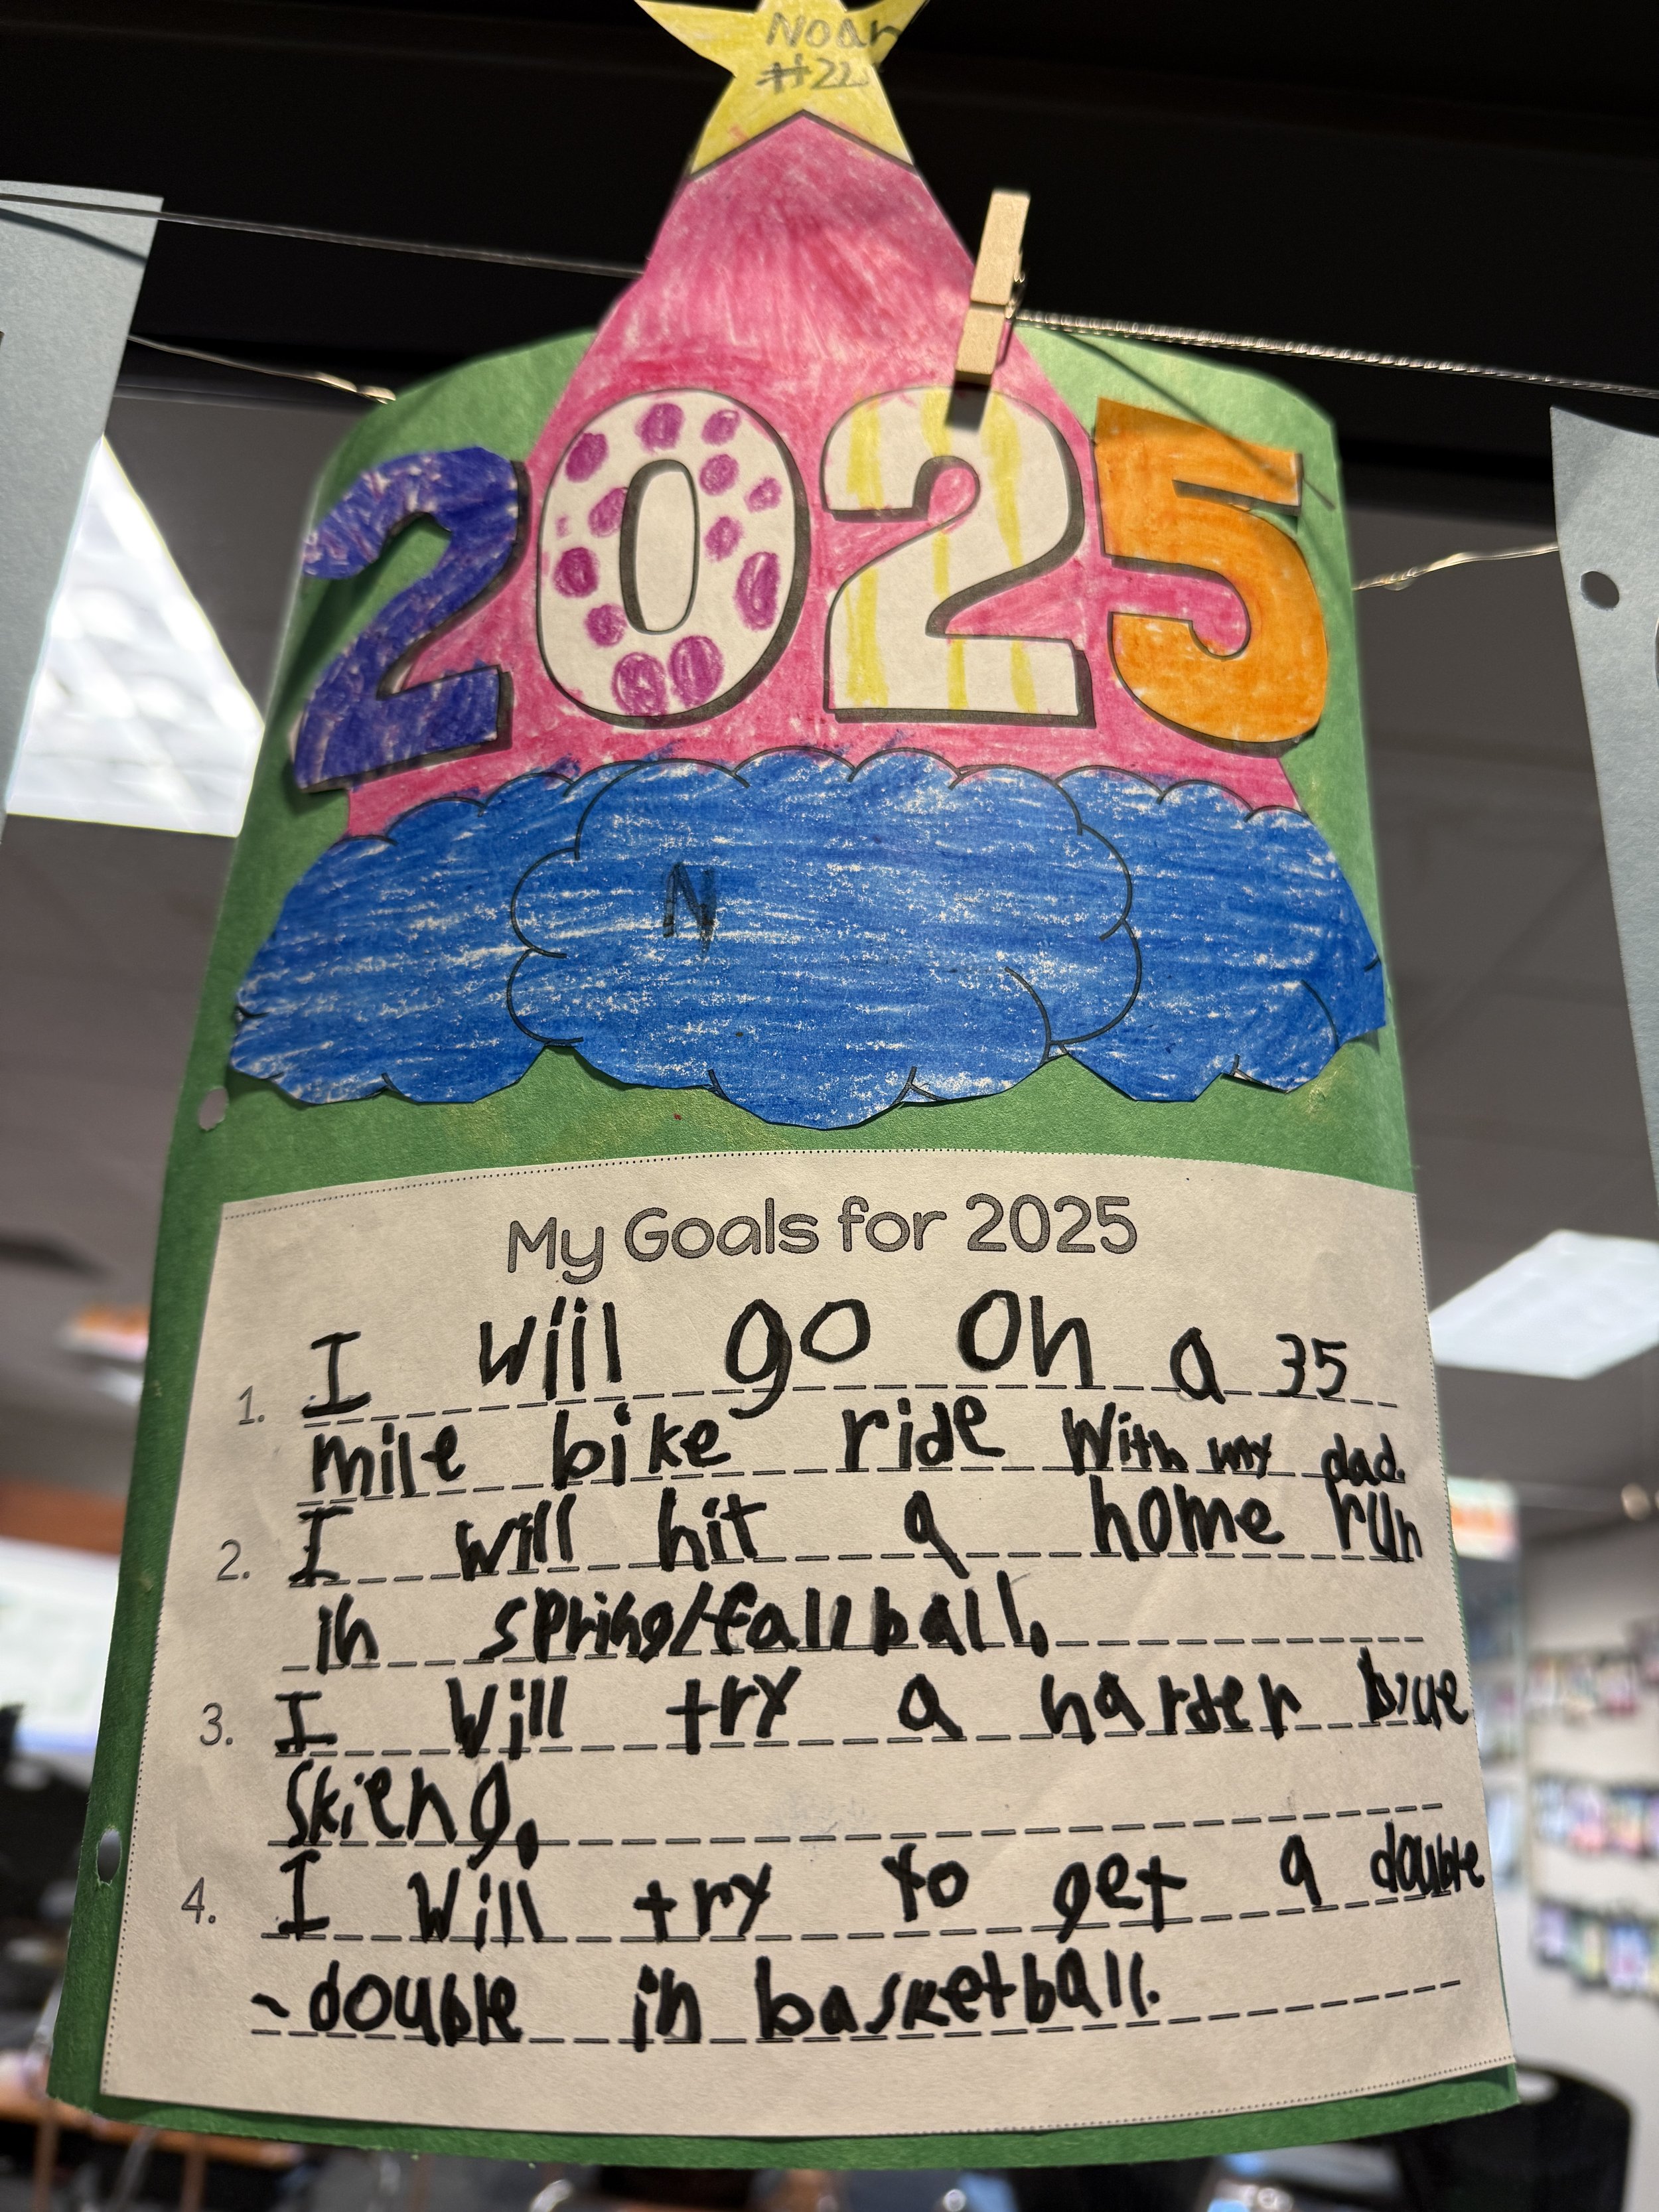 Noah
#22
2025
N
My Goals for 2025
1. I will go on a 35
mile bike ride with my dad.
2. I will hit a home run
in spring/fall ball.
3. I will try a harder blue
skieng.
4. I will try to get a double
-double in basketball.